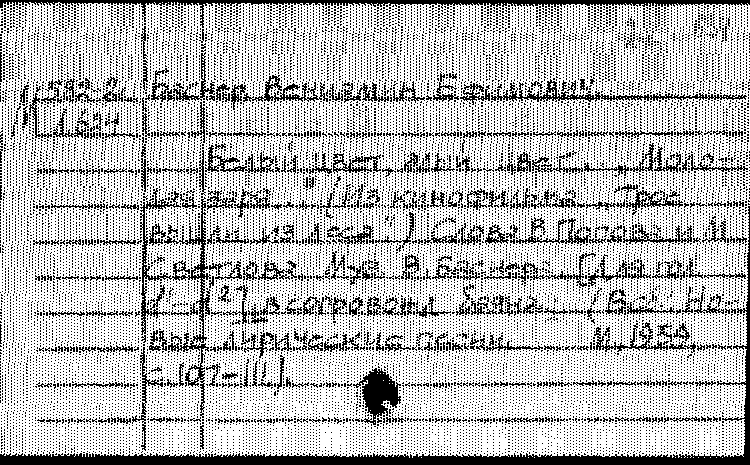 М 582-2
1.694
Баснер, Вениамин Ефимович.
Белый цвет, алый цвет..., Моло-
дая заря..." (Из кинофильма „Трое
вышли из леса") Слова В. Попова и М.
Светлова. Муз. В. Баснер. [Для гол.
d¹-a²] в сопровожд. баяна. (В сб.: Но-
вые лирические песни. М., 1959,
с. 107-111.).